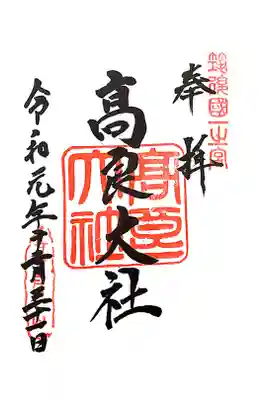 筑後國一之宮
奉拝
高良大社
高良大社
令和元年十一月三十一日